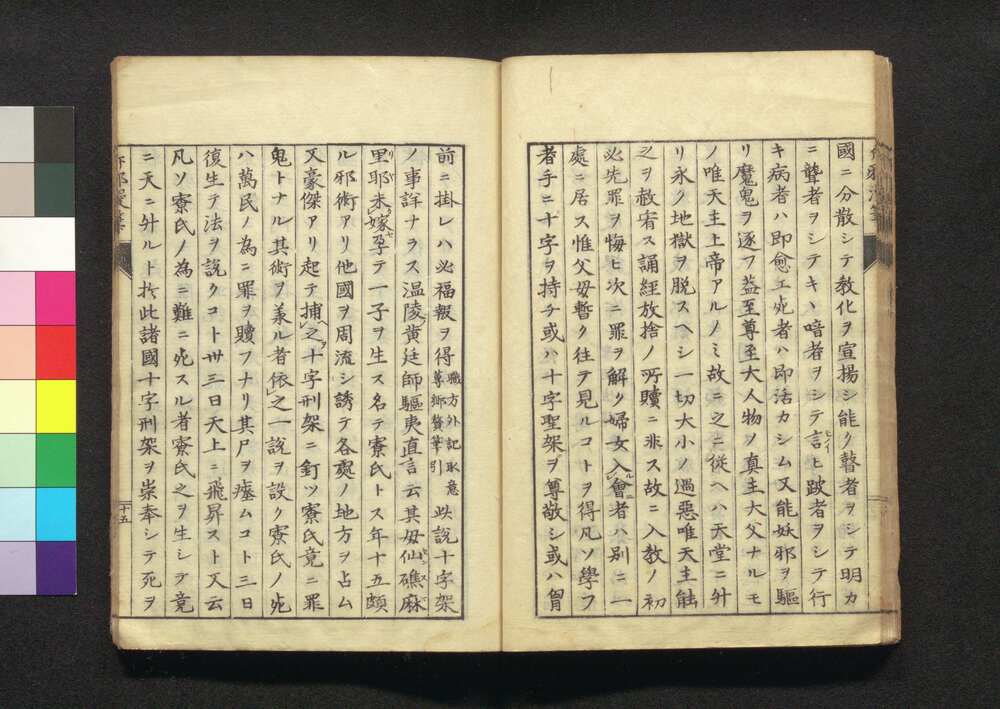 國ニ分散シテ敎化ヲ宣揚シ能ク瞽者ヲシテ明カ
ニ聾者ヲシテキヽ喑者ヲシテ言ヒ跛者ヲシテ行
キ病者ハ即愈エ死者ハ即活カシム又能妖邪ヲ驅
リ魔鬼ヲ逐フ葢至尊至大人物ノ真主大父ナルモ
ノ唯天主上帝アルノミ故ニ之ニ從ヘハ天堂ニ升
リ永ク地獄ヲ脱スヘシ一切大小ノ過惡唯天主能
之ヲ赦宥ス誦経放捨ノ所贖ニ非ス故ニ入敎ノ初
必先罪ヲ悔ヒ次ニ罪ヲ解ク婦女入會者ハ別ニ一
處ニ居ス惟父母暫ク往テ見ルコトヲ得凡ソ學フ
者手ニ十字ヲ持チ或ハ十字聖架ヲ尊敬シ或ハ胷
前ニ掛レハ必福報ヲ得職方外記取意尊鄉贅筆引此說十字架
ノ事詳ナラス温陵黄廷師驅夷直言云其母仙礁麻
里耶未嫁孕テ一子ヲ生ス名テ寮氏トス年十五頗
ル邪術アリ他國ヲ周流シ誘テ各處ノ地方ヲ占ム
又豪傑アリ起テ捕之十字刑架ニ釘ツ寮氏竟ニ罪
鬼トナル其術ヲ兼ル者依之一說ヲ設ク寮氏ノ死
ハ萬民ノ為ニ罪ヲ贖フナリ其尸ヲ瘞ムコト三日
復生テ法ヲ說クコト卅三日天上ニ飛昇スト又云
凡ソ寮氏ノ為ニ難ニ死スル者寮氏之ヲ生シテ竟
ニ天ニ升ルト扵此諸國十字刑架ヲ崇奉シテ死ヲ
十五